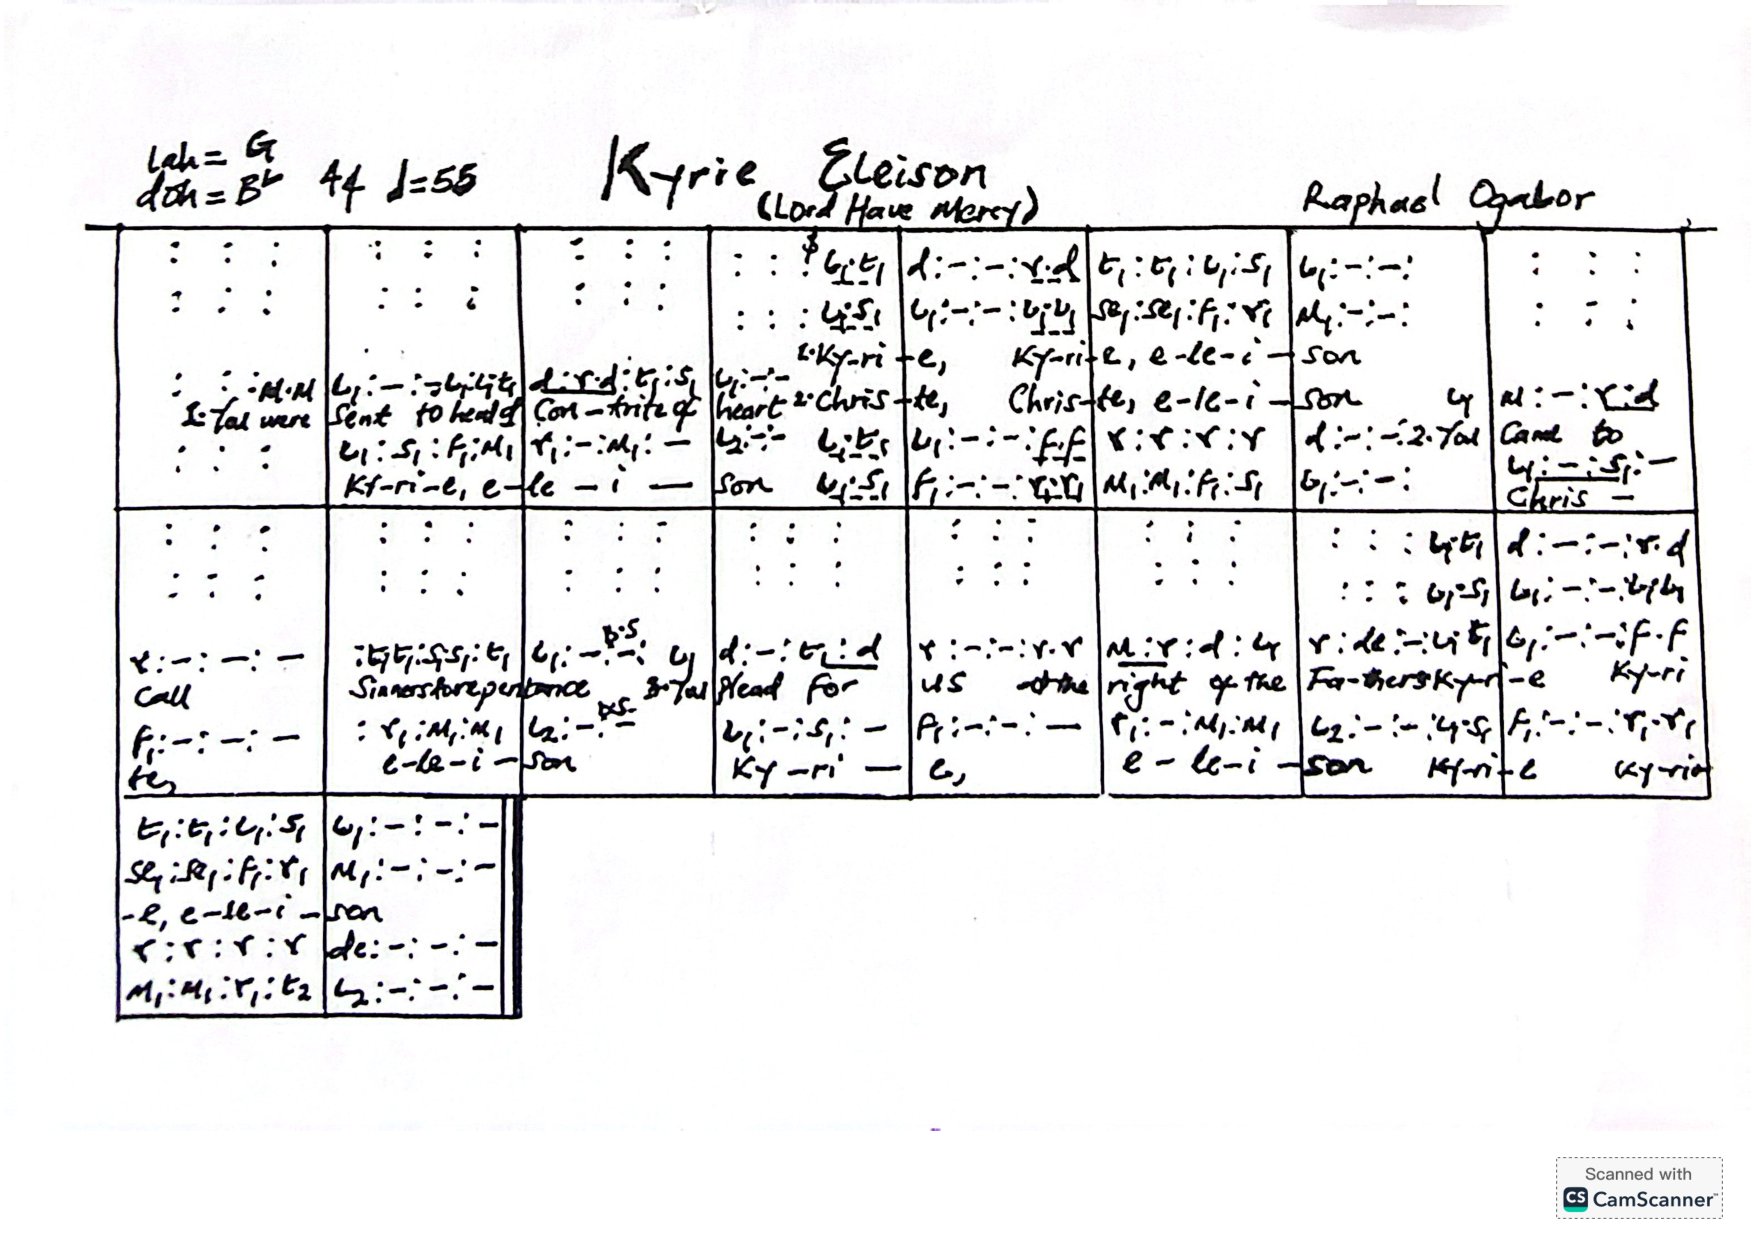 lah = G
doh = B♭ 44 ♩=55 Kyrie Eleison
(Lord Have Mercy) Raphael Ogabor
: : : | : : : | : : : | : : : l₁.t₁ | d:-:-:r.d | t₁:t₁:l₁:s₁ | l₁:-:-: | : : :
: : : | : : : | : : : | : : : l₁.s₁ | l₁:-:-:l₁.l₁ | se₁:se₁:f₁:r₁ | m₁:-:-: | : : :
1.Ky-ri -e, Ky-ri-e, e-le-i-son
: : :m.m | l₁:-:-l₁:l₁.t₁ | d:r.d:t₁:s₁ | l₁:-:- 2.Chris-te, Chris-te, e-le-i-son l₁ | m:-:r:d
1.You were sent to heal of Con-trite of heart
: : : | l₁:s₁:f₁:m₁ | r₁:-:m₁:- | l₂:-:- l₁.t₁ | l₁:-:-:f.f | r:r:r:r | d:-:-:2.You | Came to
Ky-ri-e, e-le-i-son l₁.s₁ | f₁:-:-:r₁.r₁ | m₁:m₁:f₁:s₁ | l₁:-:-: | l₁:-:s₁:-
Chris-
: : : | : : : | : : : | : : : | : : : | : : : | : : : l₁.t₁ | d:-:-:r.d
: : : | : : : | : : : | : : : | : : : | : : : | : : : l₁.s₁ | l₁:-:-:l₁.l₁
r:-:-:- | :t₁.t₁:s₁.s₁:t₁ | l₁:-:-: D.S. l₁ | d:-:t₁:d | r:-:-:r.r | m:r:d:l₁ | r:de:-:l₁.t₁ | l₁:-:-:f.f
Call Sinners to repentance 3.You plead for us at the right of the Fa-thers Ky-ri-e Ky-ri
f₁:-:-:- | :r₁:m₁:m₁ | l₂:-:- D.S. | l₁:-:s₁:- | f₁:-:-:- | r₁:-:m₁:m₁ | l₂:-:-:l₁.s₁ | f₁:-:-:r₁.r₁
te, e-le-i-son Ky-ri-e, e-le-i-son Ky-ri-e Ky-rie
t₁:t₁:l₁:s₁ | l₁:-:-:-
se₁:se₁:f₁:r₁ | m₁:-:-:-
-e, e-le-i-son
r:r:r:r | de:-:-:-
m₁:m₁:r₁:t₂ | l₂:-:-:-
Scanned with
CS CamScanner